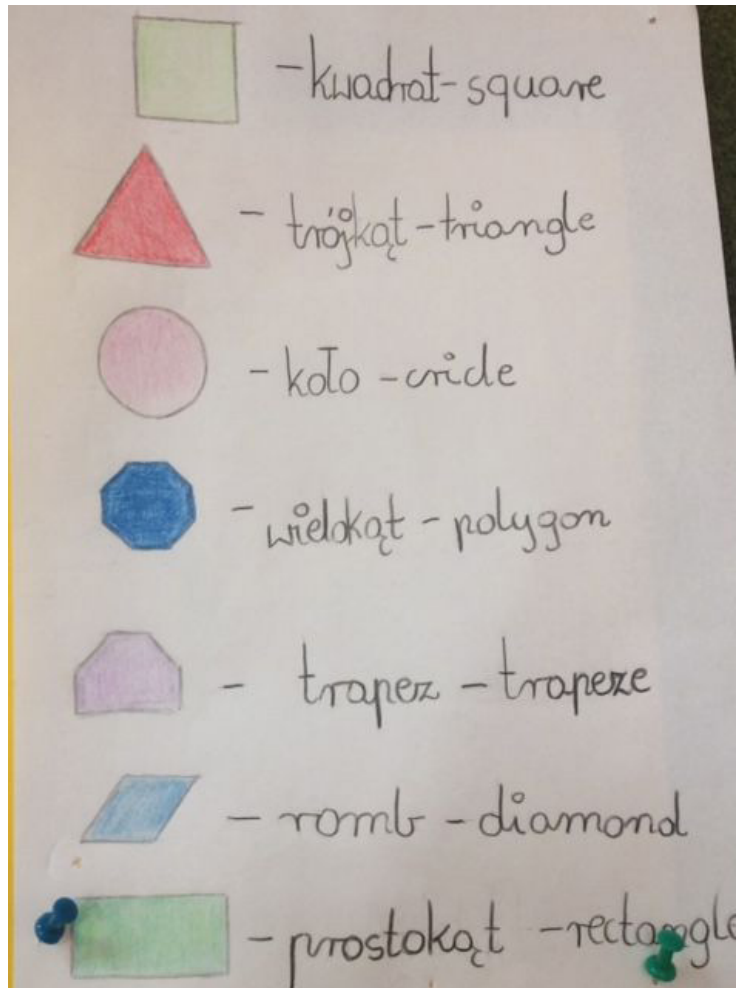 - kwadrat - square
- trójkąt - triangle
- koło - cricle
- wielokąt - polygon
- trapez - trapeze
- romb - diamond
- prostokąt - rectangle